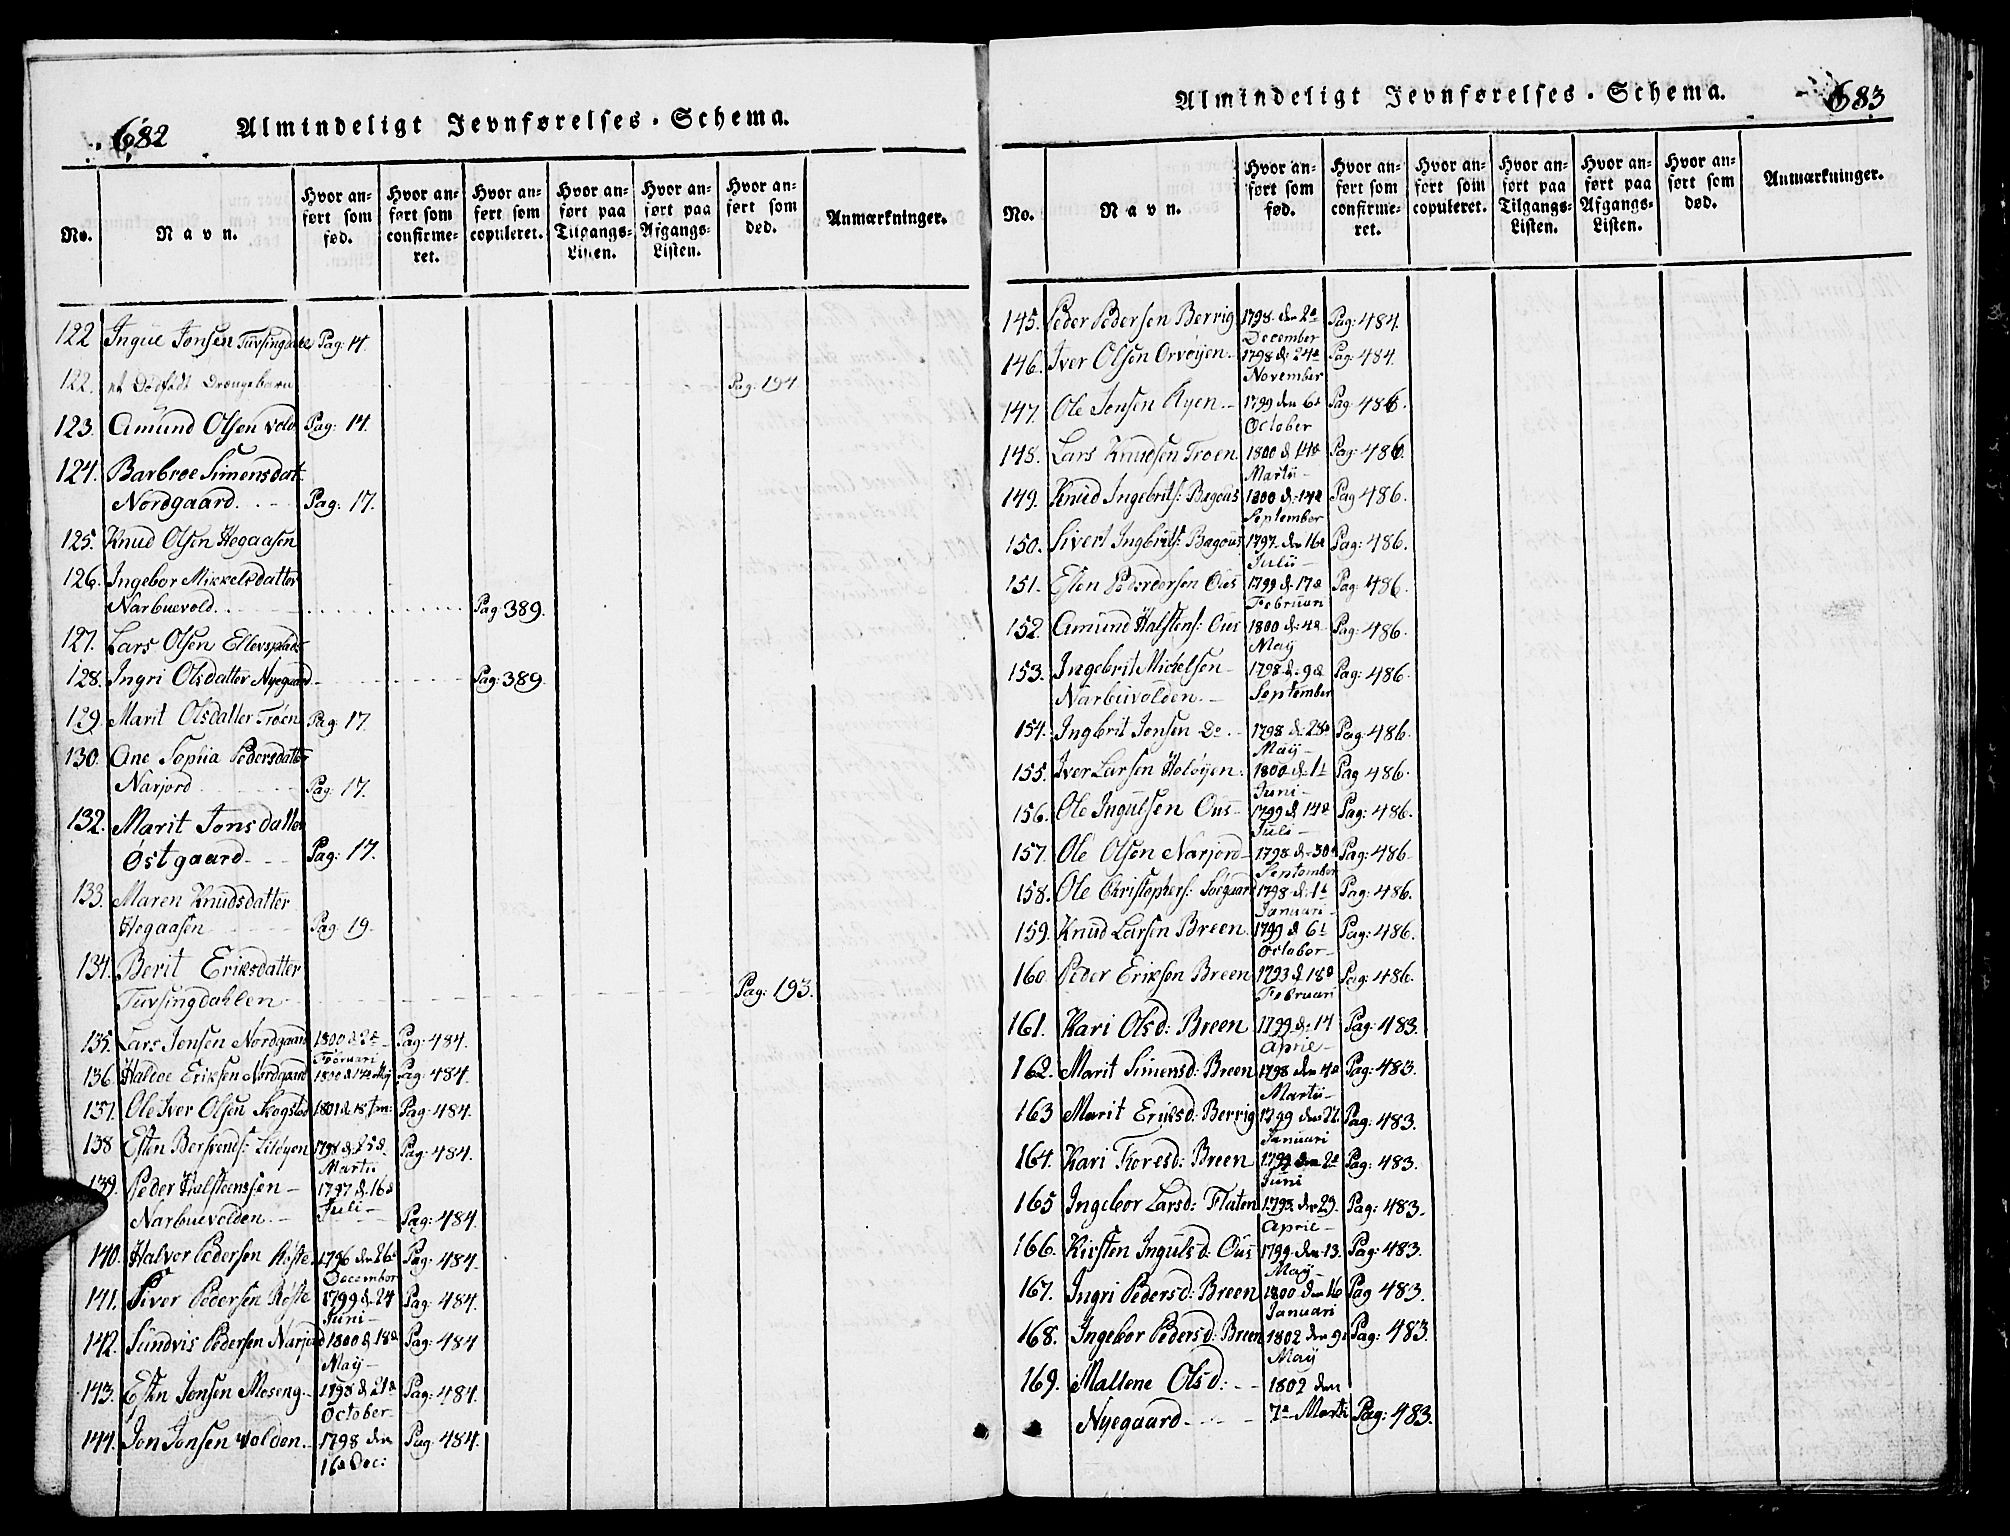 682
Almindeligt Jevnførelses-Schema.
No.
Navn.
Hvor anført som fød.
Hvor anført som confirmeret.
Hvor anført som copuleret.
Hvor anført paa Tilgangs-Listen.
Hvor anført paa Afgangs-Listen.
Hvor anført som død.
Anmærkninger.
122 Ingue Jonsen Tuvsingdalen Pag: 14.
122. et Dødfødt Drengebarn Pag: 194
123. Amund Olsen Vold Pag: 14.
124. Barbroe Simensdat
Nordgaard. Pag: 17.
125. Knud Olsen Hegaasen
126. Ingebor Mikkelsdatter
Narbuevold. Pag 389.
127. Lars Olsen Ellevsplads
128. Ingri Olsdatter Nyegaard Pag: 389.
129. Marit Olsdatter Troen Pag: 17.
130. Ane Sophia Pedersdatter
Narjord Pag: 17.
132. Marit Jonsdatter
Østgaard Pag: 17.
133. Maren Knudsdatter
Hegaasen Pag: 19.
134. Berit Eriksdatter
Tuvsingdahlen Pag: 193.
135. Lars Jonsen Nordgaard 1800 d. 2d Pag: 484.
Februari
136. Haldoe Eriksen Nordgaard 1800 d. 14d Maj Pag: 484.
137. Ole Iver Olsen Skogstad 1801 d. 18 Pag: 484.
138 Esten Bersvends: Liløyen 1798 d. 25d. Pag: 484.
Martii
139. Peder Halsteenssen 1797 d. 16d
Narbuevolden. Juli Pag: 484.
140. Halvor Pedersen Røste 1796 den 26d Pag: 484.
December
141. Siver Pedersen Røste 1799 d. 24 Pag: 484.
Juni
142. Sundvis Pedersen Narjord 1800 d. 18d Pag: 484
May
143. Esten Jonsen Moseng 1798 d. 21d Pag: 484.
October
144. Jon Jonsen Volden. 1798 den Pag: 484.
16d Dec:
Almindeligt Jevnførelses-Schema.
683
No.
Navn.
Hvor anført som fød.
Hvor anført som confirmeret.
Hvor anført som copuleret.
Hvor anført paa Tilgangs-Listen.
Hvor anført paa Afgangs-Listen.
Hvor anført som død.
Anmærkninger.
145. Peder Pedersen Berrig 1798. den 2d Pag: 484.
December
146. Iver Olsen Orvøyen 1798 d. 24d Pag: 484.
November
147. Ole Jensen Ryen 1799 den 6d Pag: 486.
October
148. Lars Knudsen Troen 1800 d 14d Pag: 486.
Martii
149. Knud Ingebrits: Bagoüs 1800 d. 14d Pag 486.
September
150. Sivert Ingbrits: Bagoüs 1797. den 16d Pag: 486.
Julii
151. Esten Pedersen Ous 1799 d. 17d Pag: 486.
Februari
152. Amund Halstens: Ous 1800 d. 4d Pag: 486.
May
153. Ingebrit Michelsen 1798 d. 9d Pag: 486.
Narbuvolden. September
154. Ingbrit Jonsen Do. 1798 d. 28d Pag: 486.
May
155. Iver Larsen Holøyen. 1800 d. 1t Pag 486.
Juni
156. Ole Ingulsen Ous 1799 d. 14d Pag: 486.
Juli
157. Ole Olsen Narjord 1798 d. 30d Pag: 486.
September
158. Ole Christophers: Soegaard 1798 d. 1t Pag: 486.
Januari
159. Knud Larsen Breen. 1799 d 6t Pag: 486.
October
160. Peder Eriksen Breen 1793 d. 18d Pag: 486.
Februari
161. Kari Olsd: Breen 1799 d. 14 Pag: 483.
April
162. Marit Simensd: Breen 1798 den 4d Pag: 483.
Martii
163 Marit Eriksd: Berrig 1799 den 22. Pag: 483.
Januari
164. Kari Toresd: Breen 1799 den 2d Pag: 483.
Juni
165 Ingebor Larsd: Flaten 1798. den 29. Pag: 483.
April
166. Kirsten Ingulsd: Ous 1799. den 13. Pag: 483.
May
167. Ingri Pedersd: Breen 1800 den 16 Pag 483.
Januari
168. Ingebor Pedersd: Breen 1802 den 9d Pag: 483.
May
169. Mallene Olsd: 1802 den
Nyegaard 7d Marti Pag: 483.